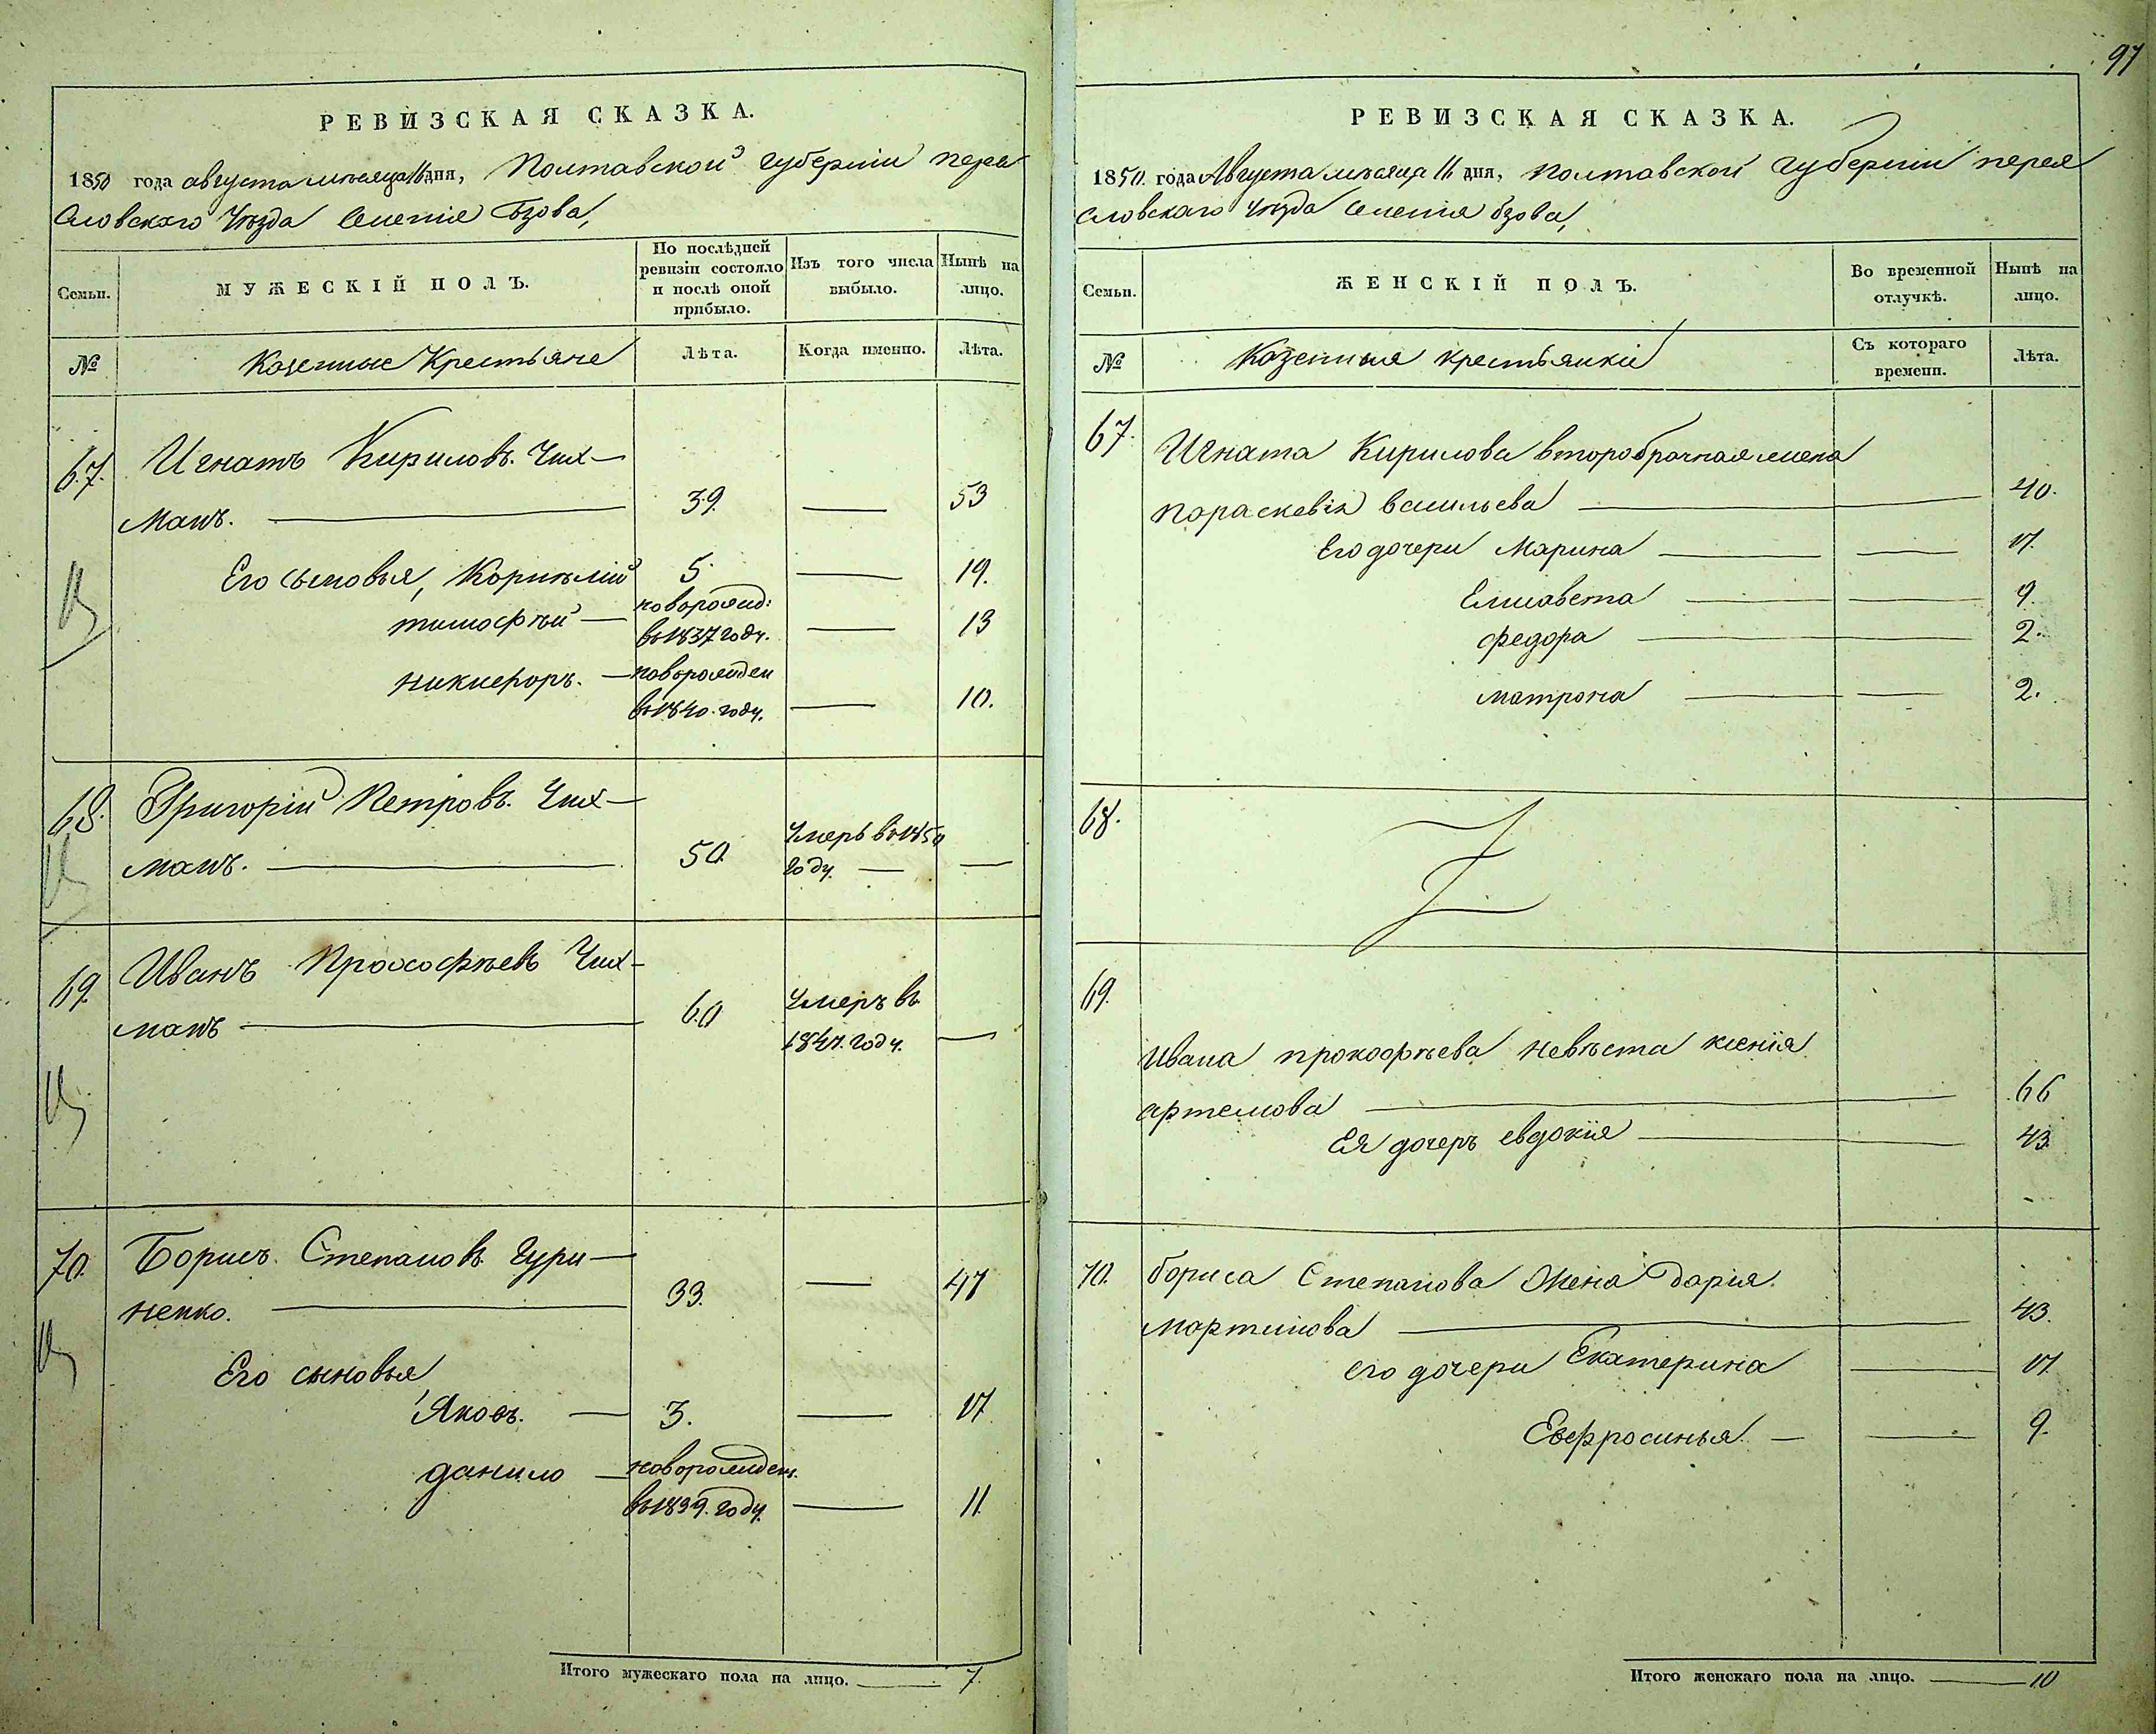 РЕВИЗСКАЯ СКАЗКА.
1850 года августа мѣсяца 16 дня, Полтавской губерніи перея
словскаго Уѣзда Селенія Бзова,
Семьи.
МУЖЕСКІЙ ПОЛЪ.
По послѣдней
ревизіи состояло
и послѣ оной
прибыло.
Изъ того числа
выбыло.
Нынѣ на
лицо.
№
Козенные Крестьяне
Лѣта.
Когда именно.
Лѣта.
67.
Игнатъ Кириловъ Чих—
манъ. — 39. — 53
Его сыновья, Корнѣлій 5. — 19.
тимофѣй — новорожд:
въ 1837 году. — 13
никифоръ. — новорожден
въ 1840. году. — 10.
68.
Григорій Петровъ. Чих—
манъ. — 50. Умеръ въ 1850
году. — —
69.
Иванъ Прокофѣевъ Чих—
манъ — 60 Умеръ въ
1847. году. —
70.
Борисъ. Степановъ. Гури—
ненко. — 33. — 47
Его сыновья
Яковъ. — 3. — 17
данило — новорожден.
въ 1839. году. — 11.
Итого мужескаго пола на лицо. — 7.
97
РЕВИЗСКАЯ СКАЗКА.
1850. года Августа мѣсяца 16 дня, Полтавской Губерніи перея
словскаго Уѣзда Селенія бзова,
Семьи.
ЖЕНСКІЙ ПОЛЪ.
Во временной
отлучкѣ.
Нынѣ на
лицо.
№
Козенныя крестьянкіи
Съ котораго
времени.
Лѣта.
67.
Игната Кирилова второбрачная жена
Пораскевія васильева — 40.
Его дочери Марина — — 17.
Елисавета — — 9.
федора — 2.
матрона — — 2.
68.
69.
Ивана прокофѣева невѣста ксенія
артемова — 66
Ея дочеръ евдокія — 43.
70.
бориса Степанова Жена Дарія.
мартинова — 43.
его дочери Екатерина — 17.
Евфросинья. — — 9.
Итого женскаго пола на лицо. — 10